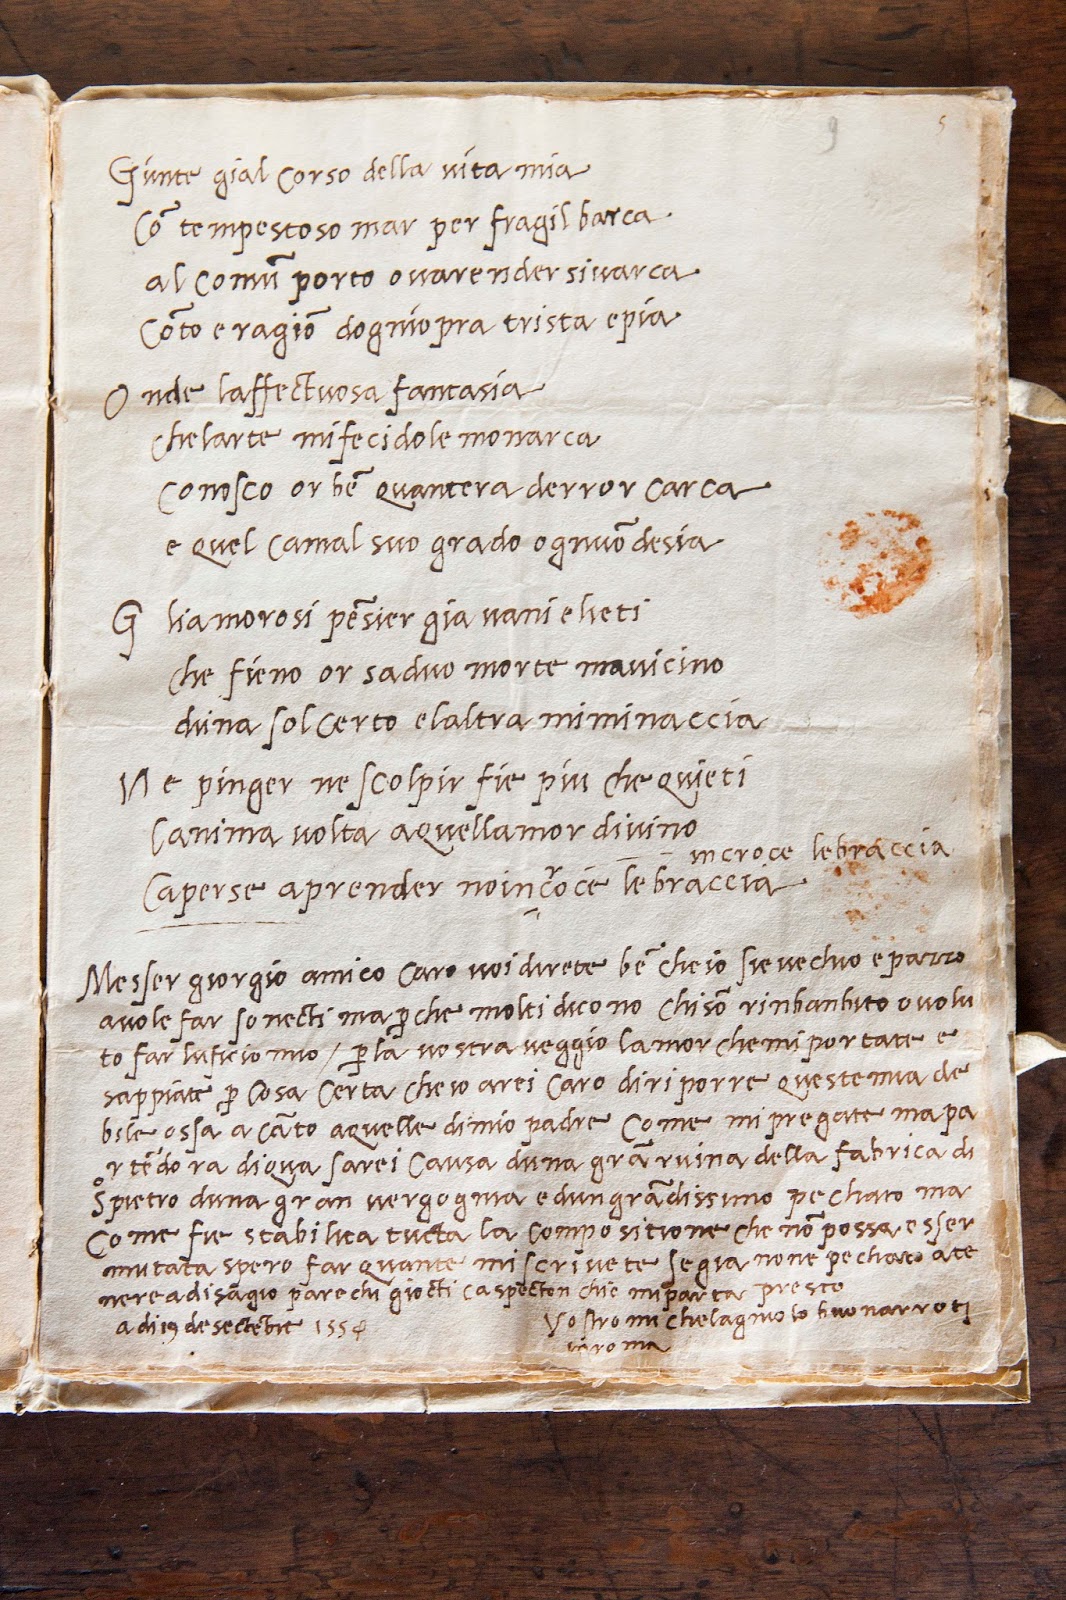 9 5
Giunte gial corso della vita mia
Cō tempestoso mar per fragil barca
al comū porto ovarender sivarca
Cōto e ragiō dogniopra trista epia
Onde laffectuosa fantasia
chelarte mifecidole monarca
conosco or bē quantera derror carca
e quel camal suo grado ogniuō desia
Gliamorosi pēsier gia vani e lieti
che fieno or saduo morte mavicino
duna sol certo elaltra miminaccia
Ne pinger ne scolpir fie piu che quieti
lanima volta aquellamor divino
in croce le braccia
caperse aprender noi in croce lebraccia
Messer giorgio amico caro voi direte bē cheio sie vechio e pazzo
avole far sonecti ma p̱che molti dicono chi sō rinbanbito o volu
to far luficio mio / p̱ la vostra veggio lamor chemi portate e
sappiate p̱ cosa certa cheio arei caro di riporre queste mia de
bile ossa a cāto aquelle di mio padre come mi pregate ma pa
rtēdo ra di qua sarei causa duna grā rvina della fabrica di
S̊ pietro duna gran vergognia e dun grādissimo pechato ma
come fie stabilita tucta la compositione che nō possa esser
mutata spero far quante mi scrivete se gia none pechato a te
nere a disagio parechi giocti caspecton chio mi parta presto
a di 19 de sectēbre 1554 Vostro michelagniolo buonarroti
in roma